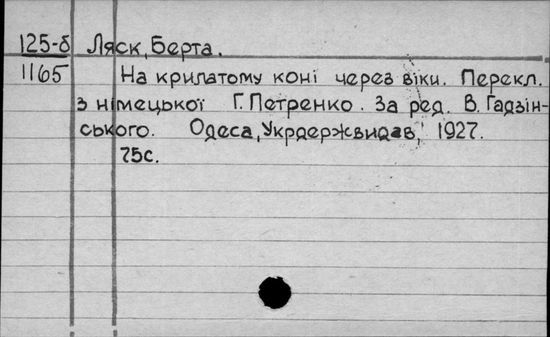 125-б Ляск, Берта.
1165 На крилатому коні через віки. Перекл.
з німецької Г. Петренко. За ред. В. Гадзін-
ського. Одеса, Укрдержвидав, 1927.
75с.